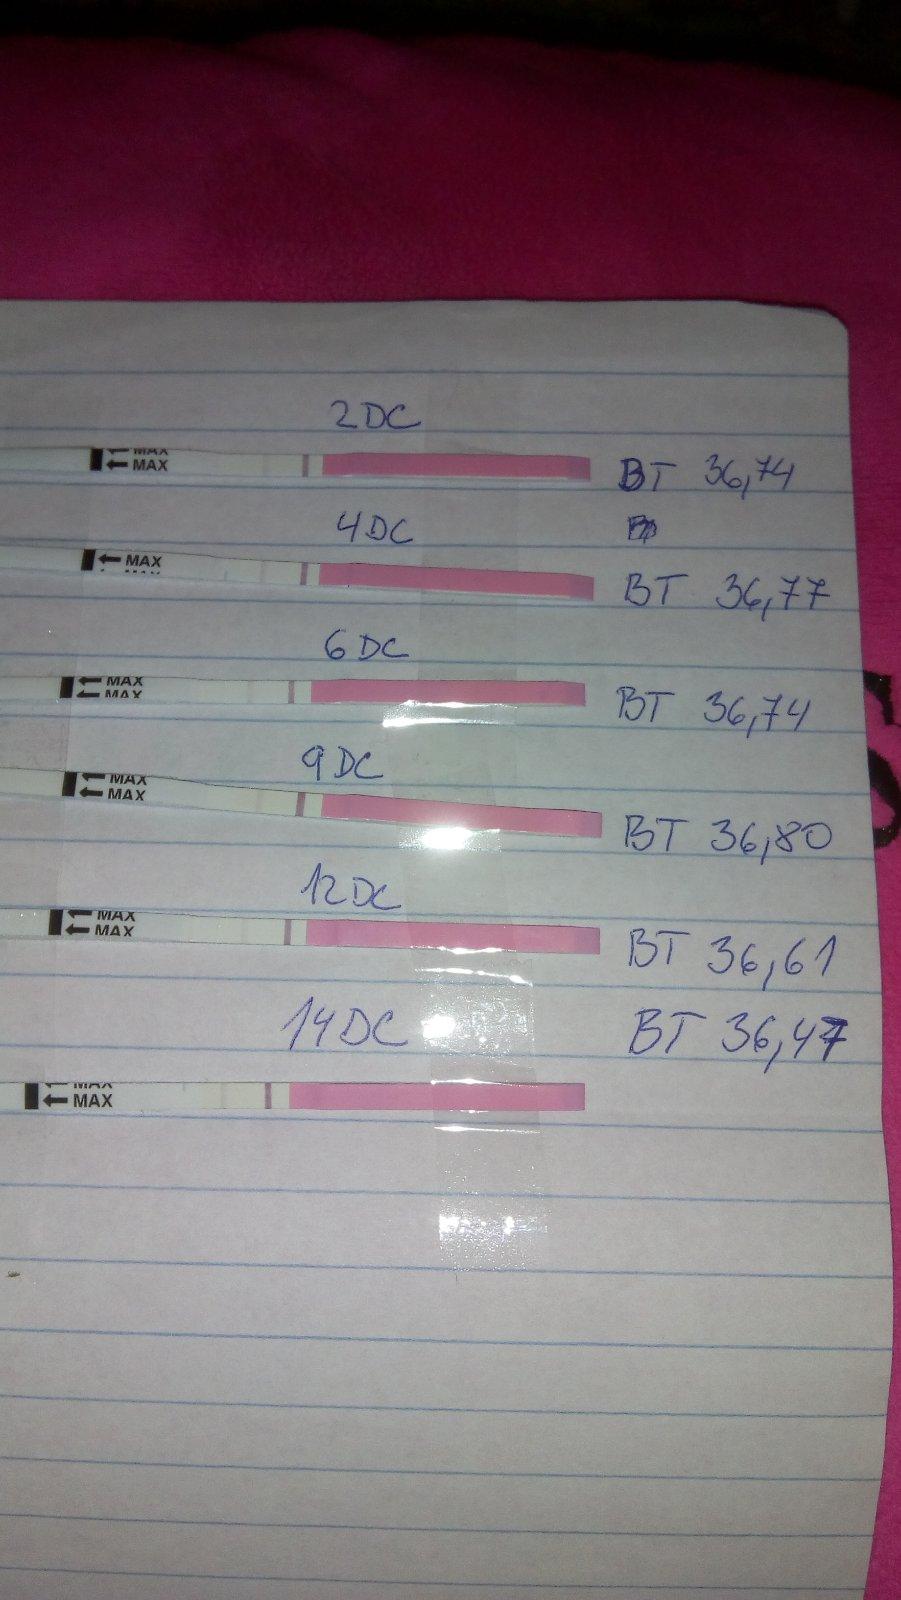 2DC
MAX
MAX
BT 36,74
4DC
MAX
BT 36,77
6DC
MAX
MAX
BT 36,74
9DC
MAX
MAX
BT 36,80
12DC
MAX
MAX
BT 36,61
14DC BT 36,47
MAX
MAX